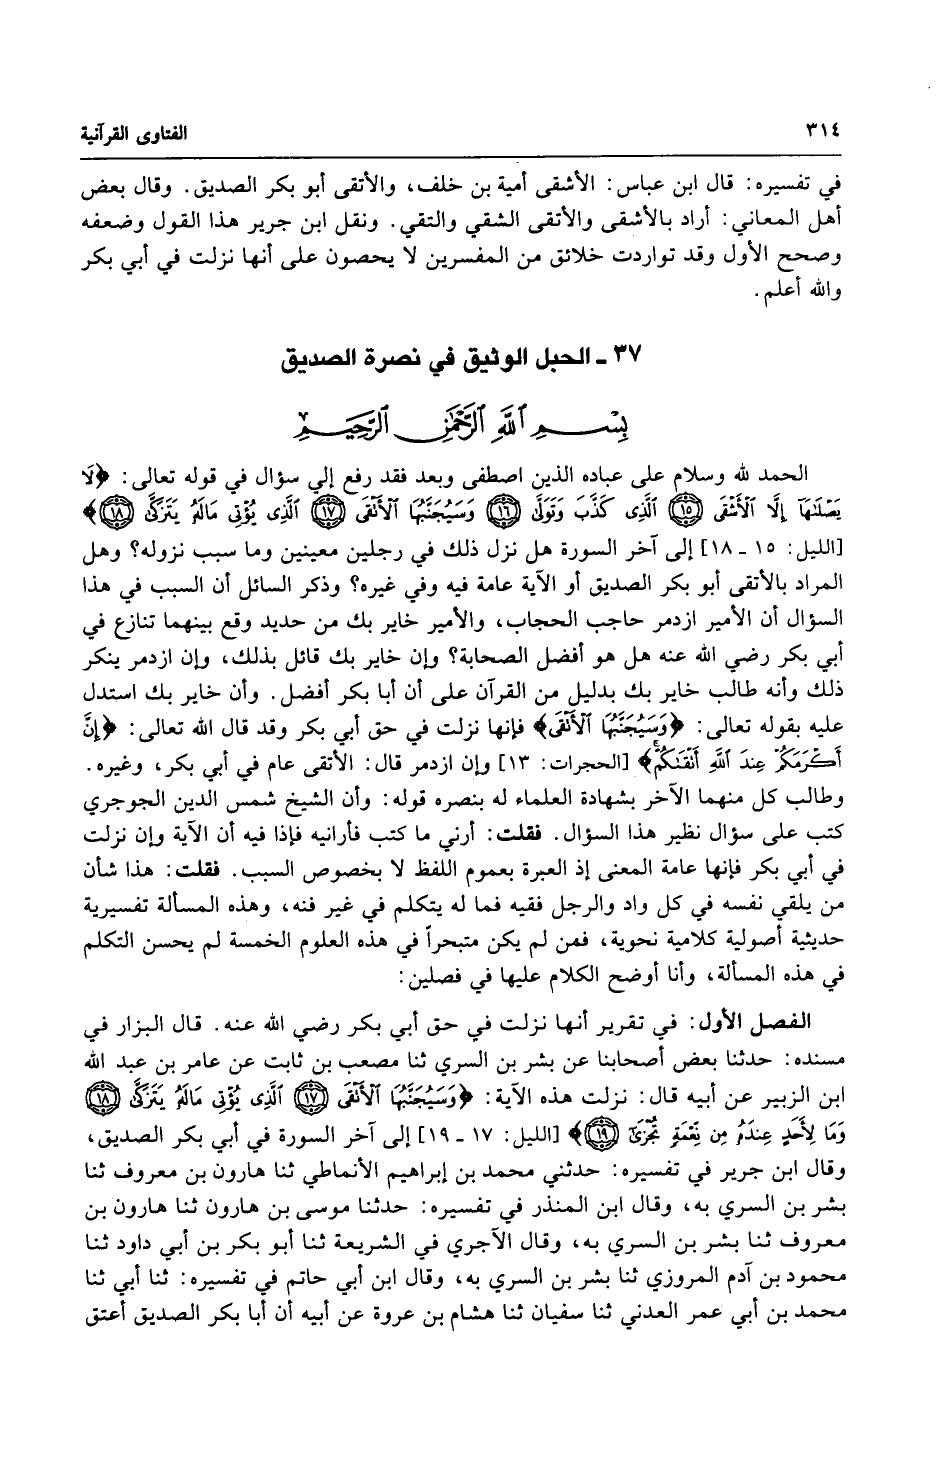 ٣١٤ الفتاوى القرآنية
في تفسيره: قال ابن عباس: الأشقى أمية بن خلف، والأتقى أبو بكر الصديق. وقال بعض
أهل المعاني: أراد بالأشقى والأتقى الشقي والتقي. ونقل ابن جرير هذا القول وضعفه
وصحح الأول وقد تواردت خلائق من المفسرين لا يحصون على أنها نزلت في أبي بكر
والله أعلم.
٣٧ ـ الحبل الوثيق في نصرة الصديق
بِسْمِ ٱللَّهِ ٱلرَّحْمَٰنِ ٱلرَّحِيمِ
الحمد لله وسلام على عباده الذين اصطفى وبعد فقد رفع إلي سؤال في قوله تعالى: ﴿لَا
يَصْلَىٰهَآ إِلَّا ٱلْأَشْقَى ١٥ ٱلَّذِى كَذَّبَ وَتَوَلَّىٰ ١٦ وَسَيُجَنَّبُهَا ٱلْأَتْقَى ١٧ ٱلَّذِى يُؤْتِى مَالَهُۥ يَتَزَكَّىٰ ١٨﴾
[الليل: ١٥ ـ ١٨] إلى آخر السورة هل نزل ذلك في رجلين معينين وما سبب نزوله؟ وهل
المراد بالأتقى أبو بكر الصديق أو الآية عامة فيه وفي غيره؟ وذكر السائل أن السبب في هذا
السؤال أن الأمير ازدمر حاجب الحجاب، والأمير خاير بك من حديد وقع بينهما تنازع في
أبي بكر رضي الله عنه هل هو أفضل الصحابة؟ وإن خاير بك قائل بذلك، وإن ازدمر ينكر
ذلك وأنه طالب خاير بك بدليل من القرآن على أن أبا بكر أفضل. وأن خاير بك استدل
عليه بقوله تعالى: ﴿وَسَيُجَنَّبُهَا ٱلْأَتْقَى﴾ فإنها نزلت في حق أبي بكر وقد قال الله تعالى: ﴿إِنَّ
أَكْرَمَكُمْ عِندَ ٱللَّهِ أَتْقَىٰكُمْ﴾ [الحجرات: ١٣] وإن ازدمر قال: الأتقى عام في أبي بكر، وغيره.
وطالب كل منهما الآخر بشهادة العلماء له بنصره قوله: وأن الشيخ شمس الدين الجوجري
كتب على سؤال نظير هذا السؤال. فقلت: أرني ما كتب فأرانيه فإذا فيه أن الآية وإن نزلت
في أبي بكر فإنها عامة المعنى إذ العبرة بعموم اللفظ لا بخصوص السبب. فقلت: هذا شأن
من يلقي نفسه في كل واد والرجل فقيه فما له يتكلم في غير فنه، وهذه المسألة تفسيرية
حديثية أصولية كلامية نحوية، فمن لم يكن متبحراً في هذه العلوم الخمسة لم يحسن التكلم
في هذه المسألة، وأنا أوضح الكلام عليها في فصلين:
الفصل الأول: في تقرير أنها نزلت في حق أبي بكر رضي الله عنه. قال البزار في
مسنده: حدثنا بعض أصحابنا عن بشر بن السري ثنا مصعب بن ثابت عن عامر بن عبد الله
ابن الزبير عن أبيه قال: نزلت هذه الآية: ﴿وَسَيُجَنَّبُهَا ٱلْأَتْقَى ١٧ ٱلَّذِى يُؤْتِى مَالَهُۥ يَتَزَكَّىٰ ١٨
وَمَا لِأَحَدٍ عِندَهُۥ مِن نِّعْمَةٍ تُجْزَىٰٓ ١٩﴾ [الليل: ١٧ ـ ١٩] إلى آخر السورة في أبي بكر الصديق،
وقال ابن جرير في تفسيره: حدثني محمد بن إبراهيم الأنماطي ثنا هارون بن معروف ثنا
بشر بن السري به، وقال ابن المنذر في تفسيره: حدثنا موسى بن هارون ثنا هارون بن
معروف ثنا بشر بن السري به، وقال الآجري في الشريعة ثنا أبو بكر بن أبي داود ثنا
محمود بن آدم المروزي ثنا بشر بن السري به، وقال ابن أبي حاتم في تفسيره: ثنا أبي ثنا
محمد بن أبي عمر العدني ثنا سفيان ثنا هشام بن عروة عن أبيه أن أبا بكر الصديق أعتق